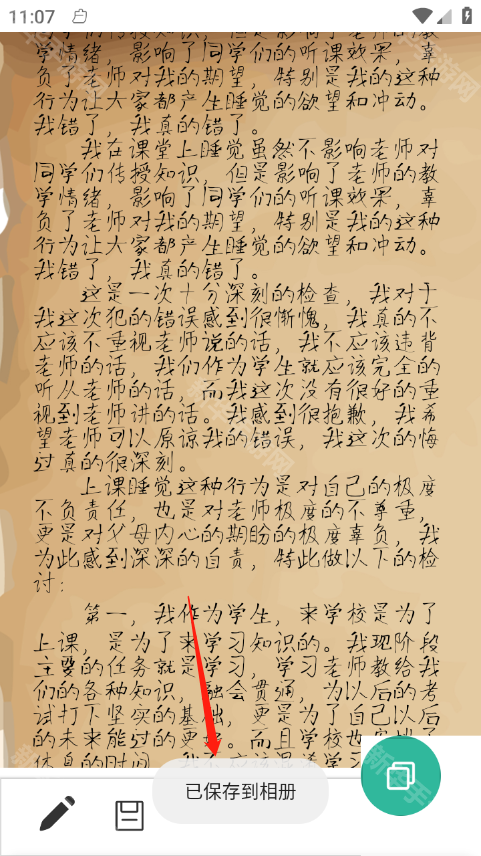 11:07
学情绪，影响了同学们的听课效果，辜
负了老师对我的期望，特别是我的这种
行为让大家都产生睡觉的欲望和冲动。
我错了，我真的错了。
我在课堂上睡觉虽然不影响老师对
同学们传授知识，但是影响了老师的教
学情绪，影响了同学们的听课效果，辜
负了老师对我的期望，特别是我的这种
行为让大家都产生睡觉的欲望和冲动。
我错了，我真的错了。
这是一次十分深刻的检查，我对于
我这次犯的错误感到很惭愧，我真的不
应该不重视老师说的话，我不应该违背
老师的话，我们作为学生就应该完全的
听从老师的话，而我这次没有很好的重
视到老师讲的话。我感到很抱歉，我希
望老师可以原谅我的错误，我这次的悔
过真的很深刻。
上课睡觉这种行为是对自己的极度
不负责任，也是对老师极度的不尊重，
更是对父母内心的期盼的极度辜负，我
为此感到深深的自责，特此做以下的检
讨：
第一，我作为学生，来学校是为了
上课，是为了来学习知识的。我现阶段
主要的任务就是学习，学习老师教给我
们的各种知识，融会贯通，为以后的考
试打下坚实的基础，更是为了自己以后
的未来能过的更好。而且学校也安排了
已保存到相册